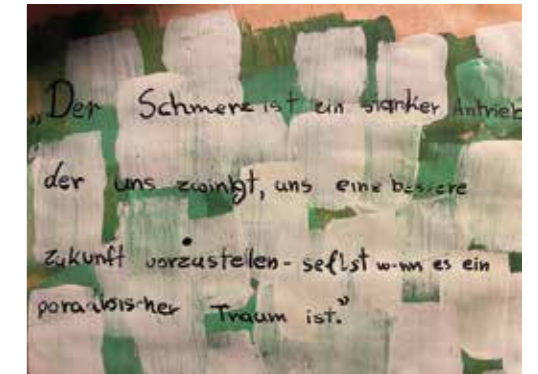 „Der Schmerz ist ein starker Antrieb
der uns zwingt, uns eine bessere
Zukunft vorzustellen - selbst wenn es ein
Traum ist."